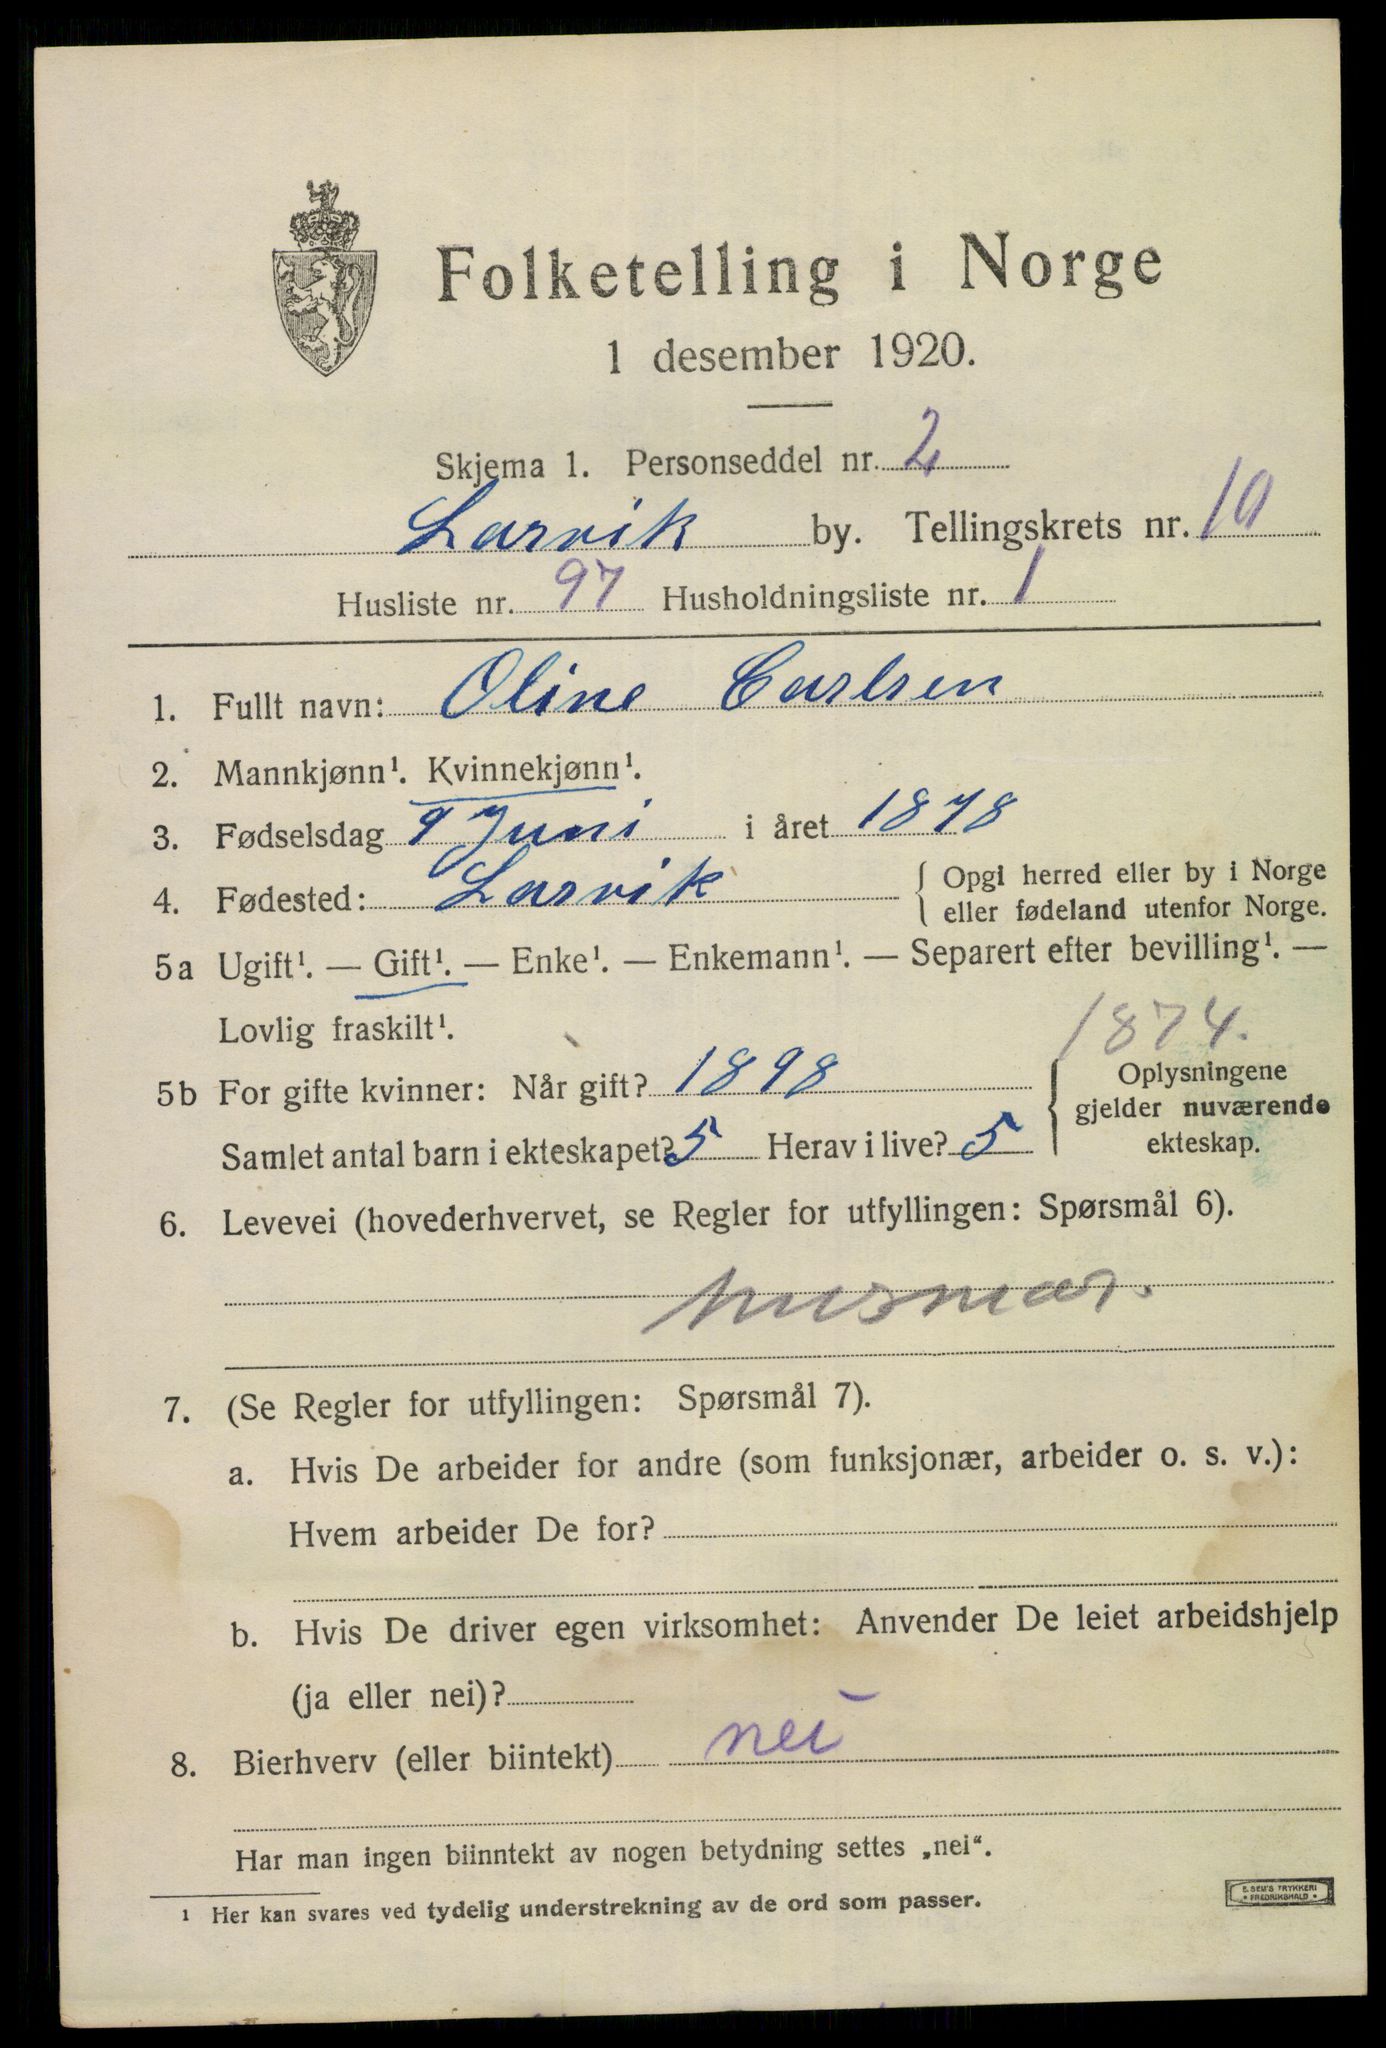 Folketelling i Norge
1 desember 1920.
Skjema 1. Personseddel nr. 2
Larvik by. Tellingskrets nr. 10
Husliste nr. 97 Husholdningsliste nr. 1
1. Fullt navn: Oline Carlsen
2. Mannkjønn¹. Kvinnekjønn¹.
3. Fødselsdag 9 Juni i året 1878
4. Fødested: Larvik { Opgi herred eller by i Norge
eller fødeland utenfor Norge.
5a Ugift¹. — Gift¹. — Enke¹. — Enkemann¹. — Separert efter bevilling¹. —
Lovlig fraskilt¹.
1874.
5b For gifte kvinner: Når gift? 1898 { Oplysningene
gjelder nuværende
Samlet antal barn i ekteskapet? 5 Herav i live? 5 ekteskap.
6. Levevei (hovederhvervet, se Regler for utfyllingen: Spørsmål 6).
husmor.
7. (Se Regler for utfyllingen: Spørsmål 7).
a. Hvis De arbeider for andre (som funksjonær, arbeider o. s. v.):
Hvem arbeider De for?
b. Hvis De driver egen virksomhet: Anvender De leiet arbeidshjelp
(ja eller nei)?
8. Bierhverv (eller biintekt) nei
Har man ingen biinntekt av nogen betydning settes „nei“.
¹ Her kan svares ved tydelig understrekning av de ord som passer.
E. SEM'S TRYKKERI
• FREDRIKSHALD •